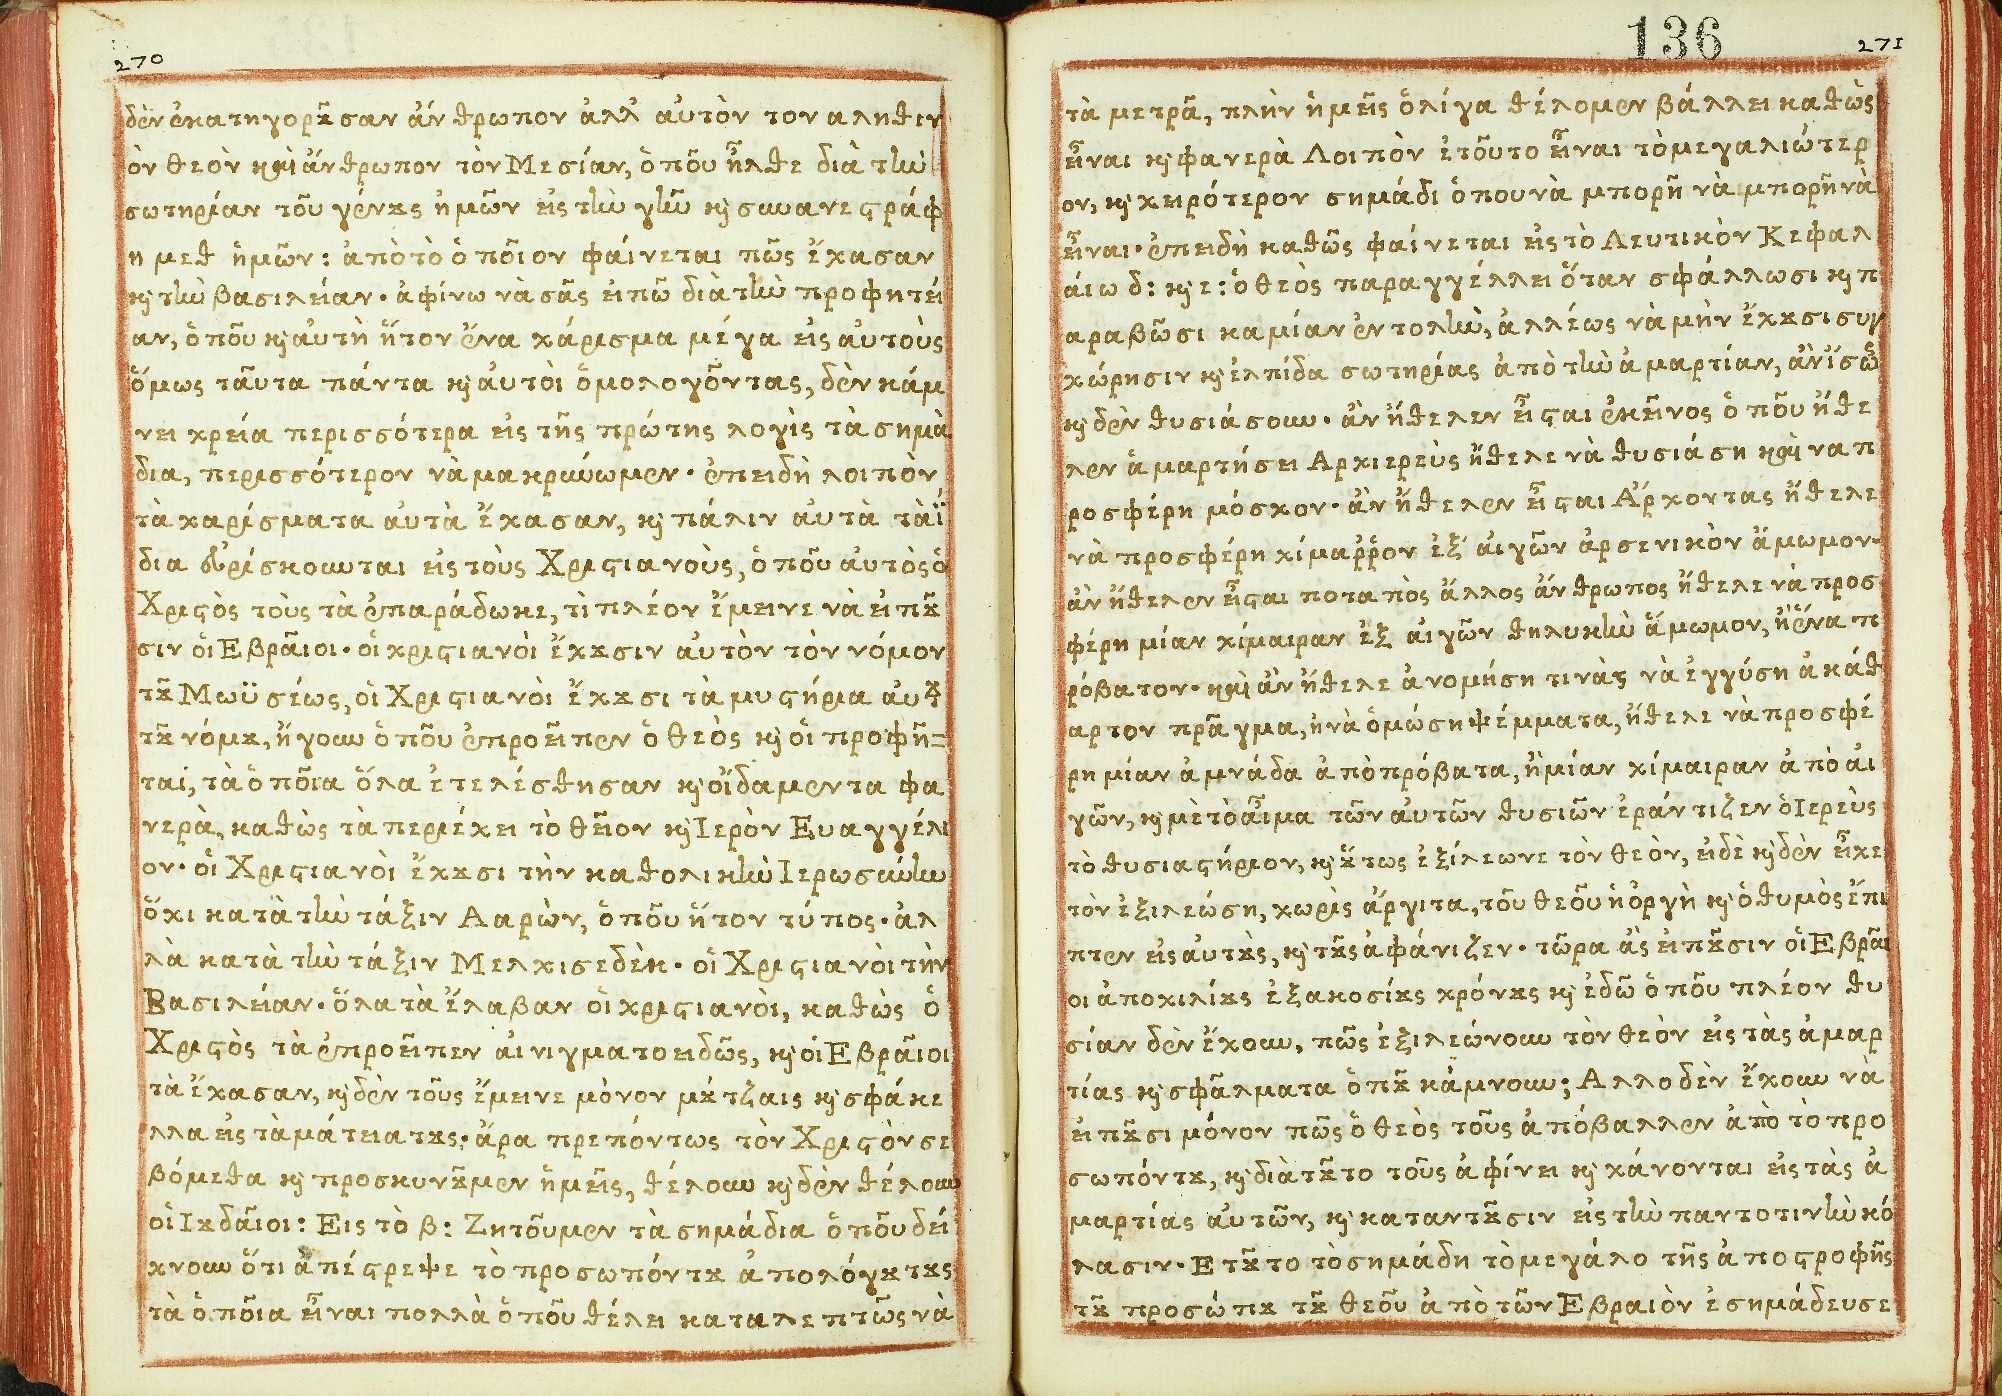 270
δὲν ἐκατηγορȣ͂σαν ἄνθρωπον ἀλλ' αὐτὸν τον αληθιν
ὸν θεὸν καὶ ἄνθρωπον τὸν Μεσίαν, ὁποῦ ἦλθε διὰ τὴν
σωτηρίαν τοῦ γένȣς ἡμῶν εἰς τὴν γῆν κ̀ συυανεϛράφ
η μεθ ἡμῶν: ἀπὸ τὸ ὁποῖον φαίνεται πῶς ἔχασαν
κ̀ τὴν βασιλείαν· ἀφίνω νὰ σᾶς εἰπῶ διὰ τὴν προφητεί
αν, ὁποῦ κ̀ αὐτὴ ἦτον ἕνα χάρισμα μέγα εἰς αὐτοὺς
ὅμως ταῦτα πάντα κ̀ αὐτοὶ ὁμολογῶντας, δὲν κάμ
νει χρεία περισσότερα εἰς τῆς πρώτης λογὶς τὰ σημὰ
δια, περισσότερον νὰ μακρύνωμεν· ἐπειδὴ λοιπὸν
τὰ χαρίσματα αὐτὰ ἔχασαν, κ̀ πάλιν αὐτὰ τὰ ἴ
δια εὑρίσκουνται εἰς τοὺς Χριϛιανοὺς, ὁποῦ αὐτὸς ὁ
Χριϛὸς τοὺς τὰ ἐπαράδωκε, τὶ πλέον ἔμεινε νὰ εἰπȣ͂
σιν ὁἱ Εβραῖοι· οἱ χριϛιανοὶ ἔχȣσιν αὐτὸν τὸν νόμον
τȣ͂ Μωϋσέως, οἱ Χριϛιανοὶ ἔχȣσι τὰ μυϛήρια αὐτȣ͂
τȣ͂ νόμȣ, ἤγουν ὁποῦ ἐπροεῖπεν ὁ θεὸς κ̀ οἱ προφῆ=
ται, τὰ ὁποῖα ὅλα ἐτελέσθησαν κ̀ οἴδαμεν τα φα
νερὰ, καθὼς τὰ περιέχει τὸ θεῖον κ̀ Ιερὸν Ευαγγέλι
ον· οἱ Χριϛιανοὶ ἔχȣσι τὴν καθολικὴν Ιερωσύνην
ὄχι κατὰ τὴν τάξιν Ααρὼν, ὁποῦ ἦτον τύπος· ἀλ
λὰ κατὰ τὴν τάξιν Μελχισεδὲκ· οἱ Χριϛιανοὶ τὴν
Βασιλείαν· ὅλα τὰ ἔλαβαν οἱ χριϛιανοὶ, καθὼς ὁ
Χριϛὸς τὰ ἐπροεῖπεν αἰνιγματοειδῶς, κ̀ οἱ Εβραῖοι
τὰ ἔχασαν, κ̀ δὲν τοῦς ἔμεινε μόνον μȣ́τζαις κ̀ σφάκε
λλα εἰς τὰ μάτειατȣς· ἄρα πρεπόντως τὸν Χριϛὸν σε
βόμεθα κ̀ προσκυνȣ͂μεν ἡμεῖς, θέλουν κ̀ δὲν θέλουν
οἱ Ιȣδαῖοι: Εις τὸ β: Ζητοῦμεν τὰ σημάδια ὁποῦ δεί
χνουν ὅτι ἀπέϛρεψε τὸ προσωπόντȣ ἀπολόγȣτȣς
τὰ ὁποῖα εἶναι πολλὰ ὁποῦ θέλει καταλεπτῶς νὰ
136
271
τὰ μετρᾶ, πλὴν ἡμεῖς ὀλίγα θέλομεν βάλλει καθὼς
εἶναι κ̀ φανερὰ Λοιπὸν ἐτοῦτο εἶναι τὸ μεγαλιώτερ
ον, κ̀ χειρότερον σημάδι ὁπου νὰ μπορῆ νὰ μπορῆ νὰ
εἶναι· ἐπειδὴ καθῶς φαίνεται εἰς τὸ Λευτικὸν Κεφαλ
άιω δ: κ̀ ε: ὁ θεὸς παραγγέλλει ὅταν σφάλλωσι κ̀ π
αραβῶσι καμίαν ἐντολὴν, ἀλλέως νὰ μὴν ἔχȣσι συγ
χώρησιν κ̀ ἐλπίδα σωτηρίας ἀπὸ τὴν ἁμαρτίαν, ἀν ἴσῶ
κ̀ δὲν θυσιάσουν· ἂν ἤθελεν εἶϛαι ἐκεῖνος ὁποῦ ἤθε
λεν ἁμαρτήσει Αρχιερεὺς ἤθελε νὰ θυσιάση καὶ να π
ροσφέρη μόσχον· ἂν ἤθελεν εἶϛαι Ἄρχοντας ἤθελε
νὰ προσφέρη χίμαῤῥον ἐξ αἰγῶν ἀρσενικὸν ἄμωμον·
ἀν ἤθελεν εἶϛαι ποταπὸς ἄλλος ἄνθρωπος ἤθελε νὰ προσ
φέρη μίαν χίμαιραν ἐξ αἰγῶν θηλυκὴν ἄμωμον, ἢ ἕνα π
ρόβατον· καὶ ἂν ἤθελε ἀνομήση τινὰς νὰ ἐγγύση ἀκάθ
αρτον πρᾶγμα, ἠ νὰ ὁμώση ψέμματα, ἤθελε νὰ προσφέ
ρη μίαν ἀμνάδα ἀπὸ πρόβατα, ἢ μίαν χίμαιραν ἀπὸ αἰ
γῶν, κ̀ μὲ τὸ αἷμα τῶν αὐτῶν θυσιῶν ἐράντιζεν ὁ Ιερεὺς
τὸ θυσιαϛήριον, κ̀ ȣ̔́τως ἐξίλεωνε τὸν θεὸν, εἰδὲ κ̀ δὲν εἶχε
τὸν ἐξιλεώση, χωρὶς ἄργιτα, τοῦ θεοῦ ἡ ὀργὴ κ̀ ὁ θυμὸς ἔπι
πτεν εἰς αὐτȣ̀ς, κ̀ τȣ͂ς ἀφάνιζεν· τῶρα ἀς εἰπȣ͂σιν οἱ Εβραῖ
οι ἀποχιλίȣς ἐξακοσίȣς χρόνȣς κ̀ ἐδῶ ὁποῦ πλέον θυ
σίαν δὲν ἔχουν, πῶς ἐξιλεώνουν τὸν θεὸν εἰς τὰς ἁμαρ
τίας κ̀ σφᾶλματα ὁπȣ͂ κάμνουν; Αλλο δὲν ἔχουν νὰ
εἰπȣ͂σι μόνον πῶς ὁ θεὸς τοῦς ἀπόβαλλεν ἀπὸ τὸ προ
σωπόντȣ, κ̀ διὰ τȣ͂το τοῦς ἀφίνει κ̀ χάνονται εἰς τὰς ἁ
μαρτίας αὐτῶν, κ̀ καταντȣ͂σιν εἰς τὴν παντοτινὴν κό
λασιν· Ετȣ͂το τὸ σημάδη τὸ μεγάλο τῆς ἀποϛροφῆς
τȣ͂ προσώπȣ τȣ͂ θεοῦ ἀπὸ τῶν Εβραιὸν ἐσημάδευσε